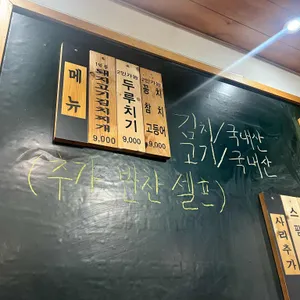 메뉴
1인분
돼지고기김치찌개
9,000
2인가능
두루치기
9,000
2인가능
꽁치
참치
고등어
9,000
김치/국내산
고기/국내산
(추가 반찬 셀프)
사리추가
스팸